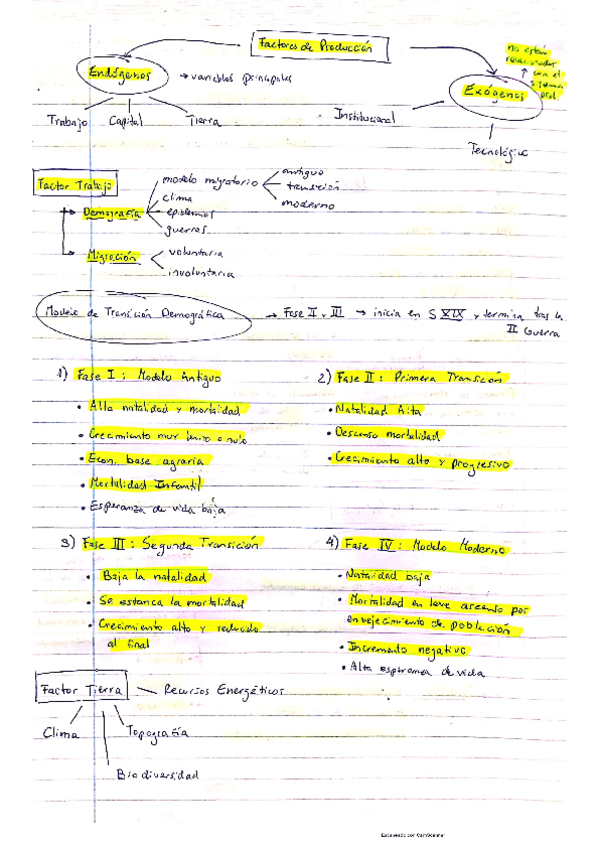 Factores de Producción
Endógenos → variables principales
Trabajo Capital Tierra
no están relacionados con el sistema
Exógenos
Institucional
Tecnológico
Factor Trabajo
Demografía
modelo migratorio
antiguo
transición
moderno
clima
epidemias
guerras
Migración
voluntaria
involuntaria
Modelo de Transición Demográfica → Fase II y III → inicia en S XIX y termina tras la II Guerra
1) Fase I : Modelo Antiguo
• Alta natalidad y mortalidad
• Crecimiento muy lento o nulo
• Econ. base agraria
• Mortalidad Infantil
• Esperanza de vida baja
2) Fase II : Primera Transición
• Natalidad Alta
• Descenso mortalidad
• Crecimiento alto y progresivo
3) Fase III : Segunda Transición
• Baja la natalidad
• Se estanca la mortalidad
• Crecimiento alto y reducido
al final
4) Fase IV : Modelo Moderno
• Natalidad baja
• Mortalidad en leve ascenso por
envejecimiento de población
• Incremento negativo
• Alta esperanza de vida
Factor Tierra — Recursos Energéticos
Clima
Topografía
Biodiversidad
Escaneado con CamScanner